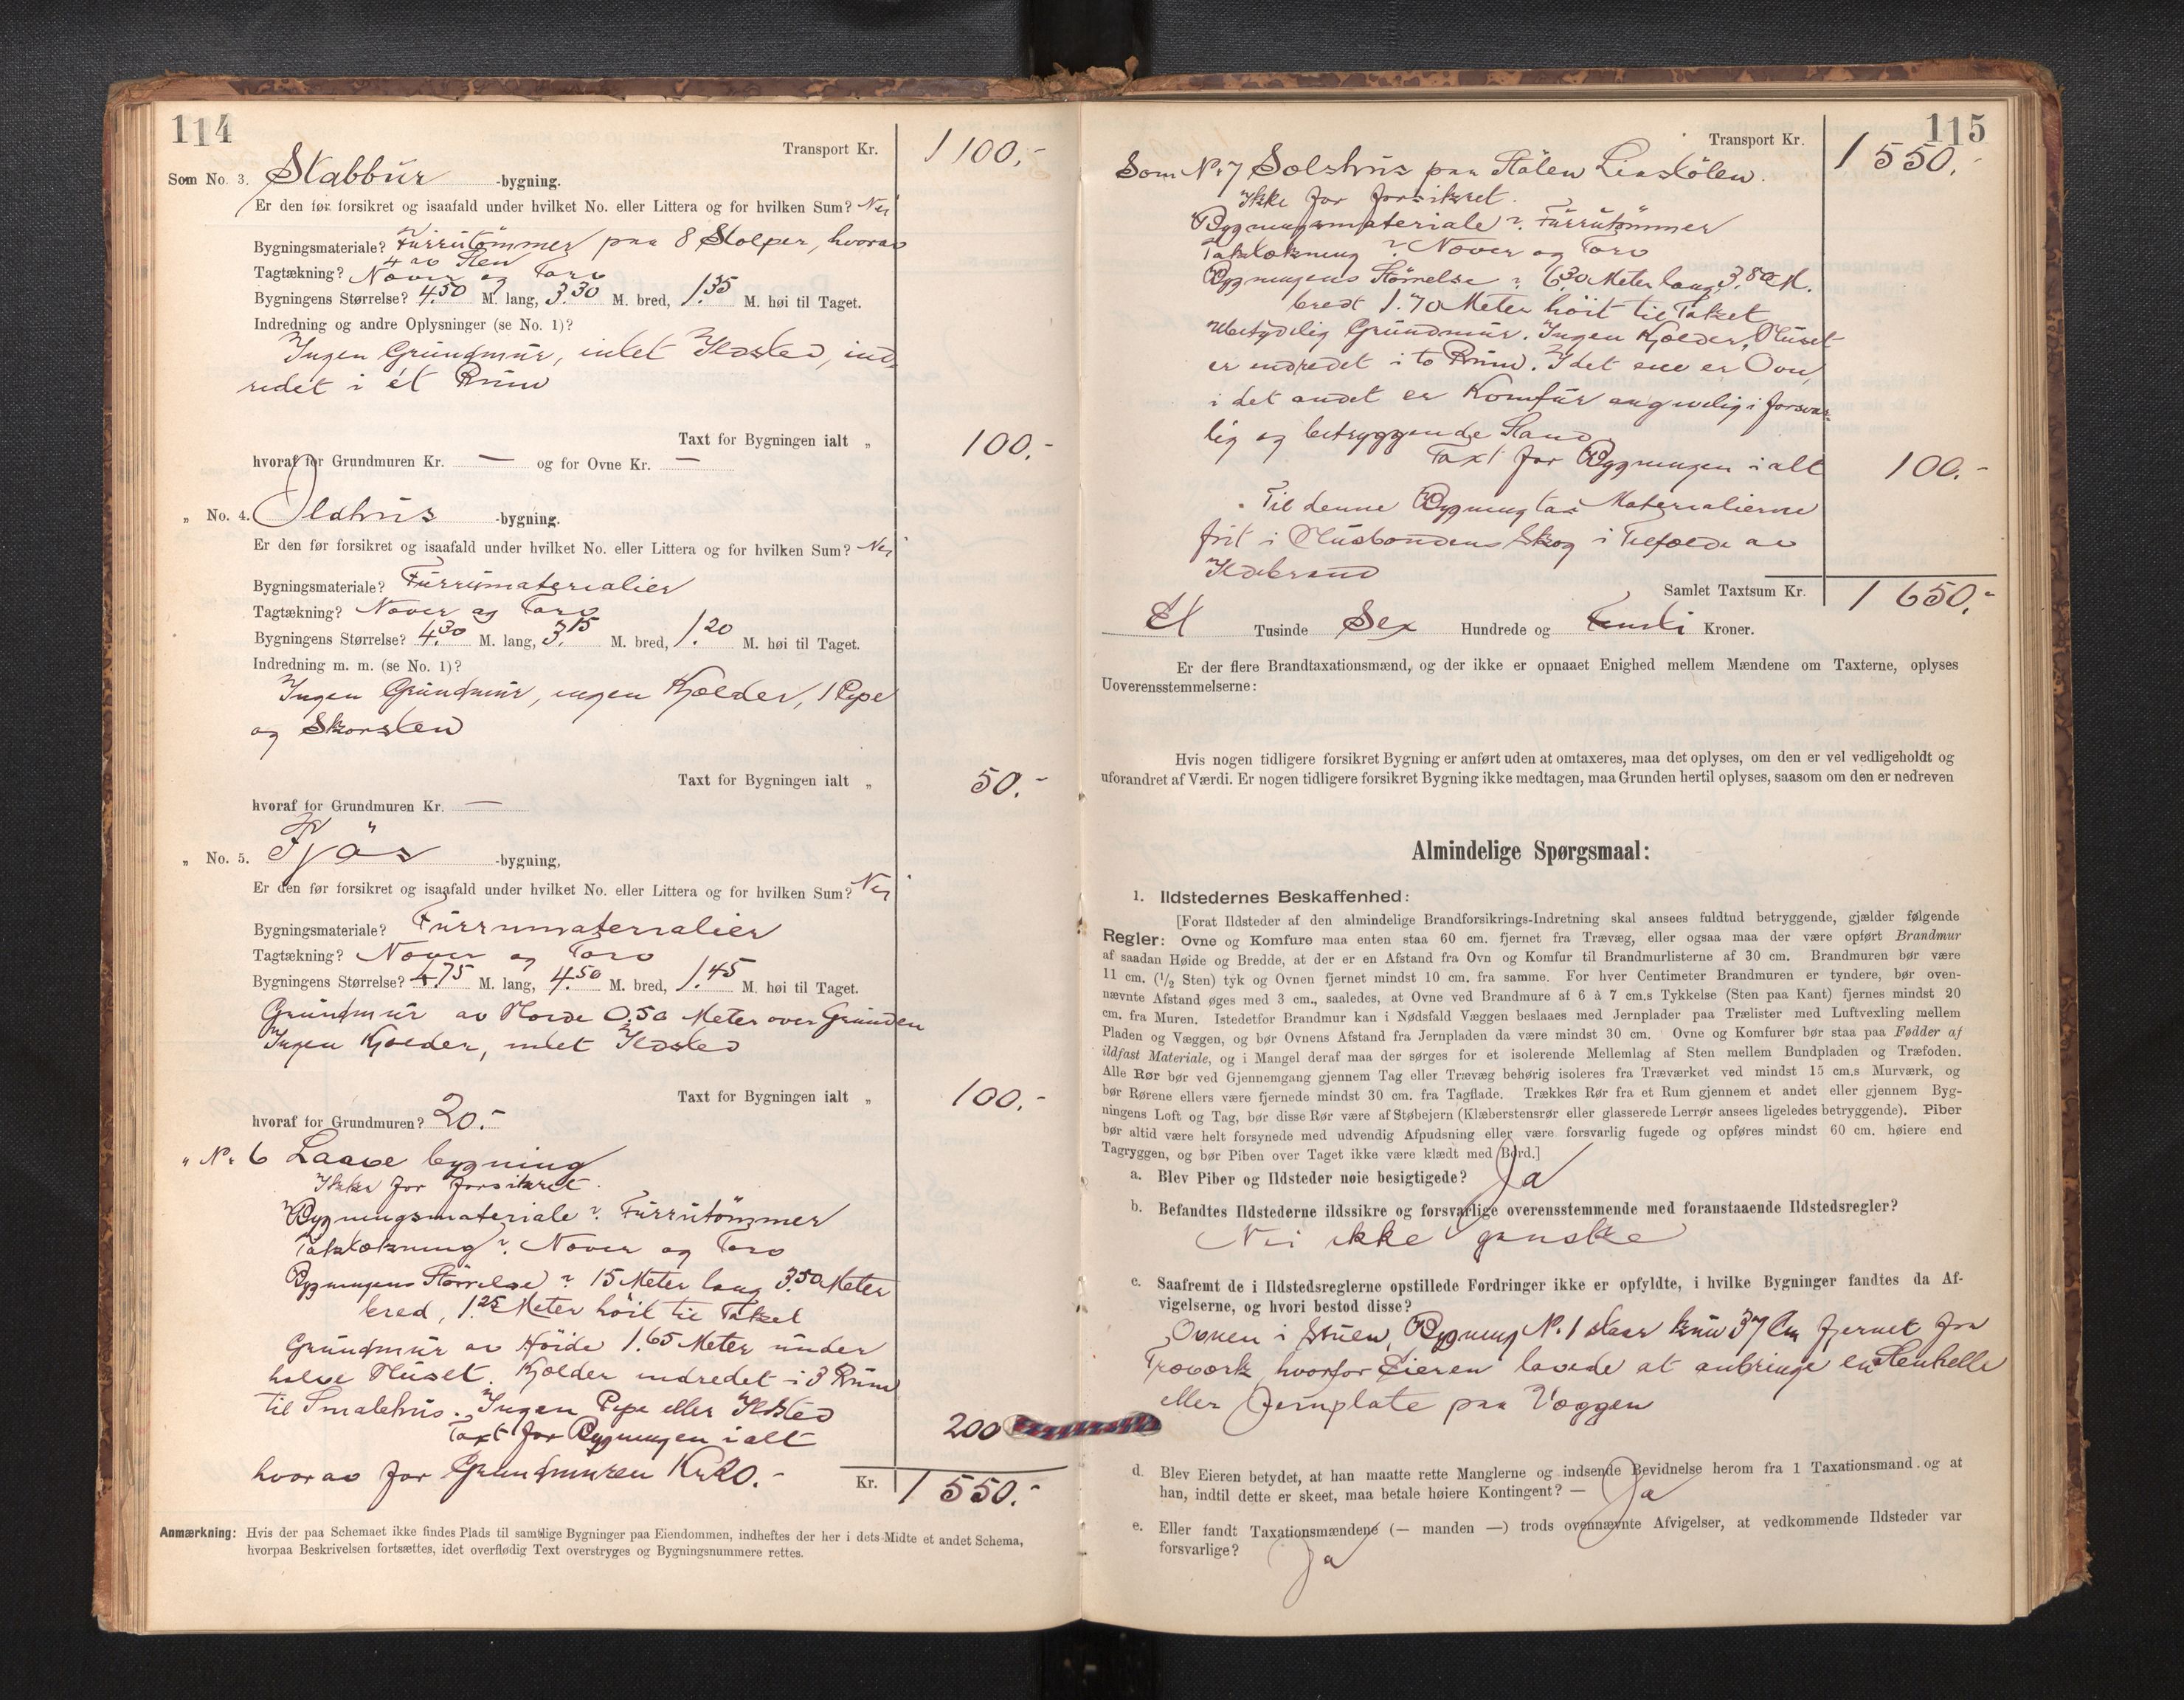 114
Transport Kr. 1100,-
Som No. 3. Stabbur -bygning.
Er den før forsikret og isaafald under hvilket No. eller Littera og for hvilken Sum? Nei
Bygningsmateriale? Furrutömmer paa 8 Stolper, hvorav
4 av Sten
Tagtækning? Næver og Torv
Bygningens Størrelse? 4.50 M. lang, 3.30 M. bred, 1.35 M. høi til Taget.
Indredning og andre Oplysninger (se No. 1)?
Ingen Grundmur, intet Ildsted, ind-
redet i ét Rum
Taxt for Bygningen ialt „ 100.-
hvoraf for Grundmuren Kr. — og for Ovne Kr. —
„ No. 4. Ildhus -bygning.
Er den før forsikret og isaafald under hvilket No. eller Littera og for hvilken Sum? Nei
Bygningsmateriale? Furrumaterialier
Tagtækning? Næver og Torv
Bygningens Størrelse? 4.30 M. lang, 3.15 M. bred, 1.20 M. høi til Taget.
Indredning m. m. (se No. 1)?
Ingen Grundmur, ingen Kjælder, 1 Pipe
og Skorsten
Taxt for Bygningen ialt „ 50.-
hvoraf for Grundmuren Kr. —
„ No. 5. Fjös -bygning,
Er den før forsikret og isaafald under hvilket No. eller Littera og for hvilken Sum? Nei
Bygningsmateriale? Furrumaterialier
Tagtækning? Næver og Torv
Bygningens Størrelse? 4.75 M. lang, 4.50 M. bred, 1.45 M. høi til Taget.
Grundmur av Høide 0.50 Meter over Grunden
Ingen Kjælder, intet Ildsted
Taxt for Bygningen ialt „ 100.-
hvoraf for Grundmuren? 20.-
„ No. 6 Laave bygning
Ikke før forsikret.
Bygningsmateriale? Furrutömmer
Taktækning? Næver og Torv
Bygningens Störrelse? 15 Meter lang 3.50 Meter
bred, 1.25 Meter höit til Taket
Grundmur av Höide 1.65 Meter under
halve Huset. Kjælder indredet i 3 Rum
til Smalehus. Ingen Pipe eller Ildsted
Taxt for Bygningen ialt 200
hvorav for Grundmuren Kr 20.-
Kr. 1550.-
Anmærkning: Hvis der paa Schemaet ikke findes Plads til samtlige Bygninger paa Eiendommen, indheftes der her i dets Midte et andet Schema,
hvorpaa Beskrivelsen fortsættes, idet overflødig Text overstryges og Bygningsnummere rettes.
115
Transport Kr. 1550.-
Som No. 7 Sælshus paa Stölen Liastölen.
Ikke før forsikret.
Bygningsmateriale? Furrutömmer
Taktækning? Næver og Torv
Bygningens Störrelse? 6.30 Meter lang, 3.80 M.
bredt 1.70 Meter höit til Taket
Ubetydelig Grundmur. Ingen Kjælder, Huset
er indredet i to Rum. I det ene er Ovn,
i det andet er Komfur angivelig i forsvar-
lig og betryggende Stand.
Taxt for Bygningen ialt 100.-
Til denne Bygning tas Materialierne
frit i Husbondens Skog i Tilfælde av
Ildebrand
Samlet Taxtsum Kr. 1650.-
Et Tusinde Sex Hundrede og femti Kroner.
Er der flere Brandtaxationsmænd, og der ikke er opnaaet Enighed mellem Mændene om Taxterne, oplyses
Uoverensstemmelserne:
Hvis nogen tidligere forsikret Bygning er anført uden at omtaxeres, maa det oplyses, om den er vel vedligeholdt og
uforandret af Værdi. Er nogen tidligere forsikret Bygning ikke medtagen, maa Grunden hertil oplyses, saasom om den er nedreven
Almindelige Spørgsmaal:
1. Ildstedernes Beskaffenhed:
[Forat Ildsteder af den almindelige Brandforsikrings-Indretning skal ansees fuldtud betryggende, gjælder følgende
Regler: Ovne og Komfure maa enten staa 60 cm. fjernet fra Trævæg, eller ogsaa maa der være opført Brandmur
af saadan Høide og Bredde, at der er en Afstand fra Ovn og Komfur til Brandmurlisterne af 30 cm. Brandmuren bør være
11 cm. (1/2 Sten) tyk og Ovnen fjernet mindst 10 cm. fra samme. For hver Centimeter Brandmuren er tyndere, bør oven-
nævnte Afstand øges med 3 cm., saaledes, at Ovne ved Brandmure af 6 à 7 cm.s Tykkelse (Sten paa Kant) fjernes mindst 20
cm. fra Muren. Istedetfor Brandmur kan i Nødsfald Væggen beslaaes med Jernplader paa Trælister med Luftvexling mellem
Pladen og Væggen, og bør Ovnens Afstand fra Jernpladen da være mindst 30 cm. Ovne og Komfurer bør staa paa Fødder af
ildfast Materiale, og i Mangel deraf maa der sørges for et isolerende Mellemlag af Sten mellem Bundpladen og Træfoden.
Alle Rør bør ved Gjennemgang gjennem Tag eller Trævæg behørig isoleres fra Træværket ved mindst 15 cm.s Murværk, og
bør Rørene ellers være fjernede mindst 30 cm. fra Tagflade. Trækkes Rør fra et Rum gjennem et andet eller gjennem Byg-
ningens Loft og Tag, bør disse Rør være af Støbejern (Klæberstensrør eller glasserede Lerrør ansees ligeledes betryggende). Piber
bør altid være helt forsynede med udvendig Afpudsning eller være forsvarlig fugede og opføres mindst 60 cm. høiere end
Tagryggen, og bør Piben over Taget ikke være klædt med Bord.]
a. Blev Piber og Ildsteder nøie besigtigede? Ja
b. Befandtes Ildstederne ildssikre og forsvarlige overensstemmende med foranstaaende Ildstedsregler?
Nei ikke ganske
c. Saafremt de i Ildstedsreglerne opstillede Fordringer ikke er opfyldte, i hvilke Bygninger fandtes da Af-
vigelserne, og hvori bestod disse?
Ovnen i Stuen, Bygning No. 1 staar kun 37 Cm fjernet fra
Træværk, hvorfor Eieren lovede at anbringe en Stenhelle
eller Jernplate paa Væggen
d. Blev Eieren betydet, at han maatte rette Manglerne og indsende Bevidnelse herom fra 1 Taxationsmand og at
han, indtil dette er skeet, maa betale høiere Kontingent? — Ja
e. Eller fandt Taxationsmændene (— manden —) trods ovennævnte Afvigelser, at vedkommende Ildsteder var
forsvarlige? Ja